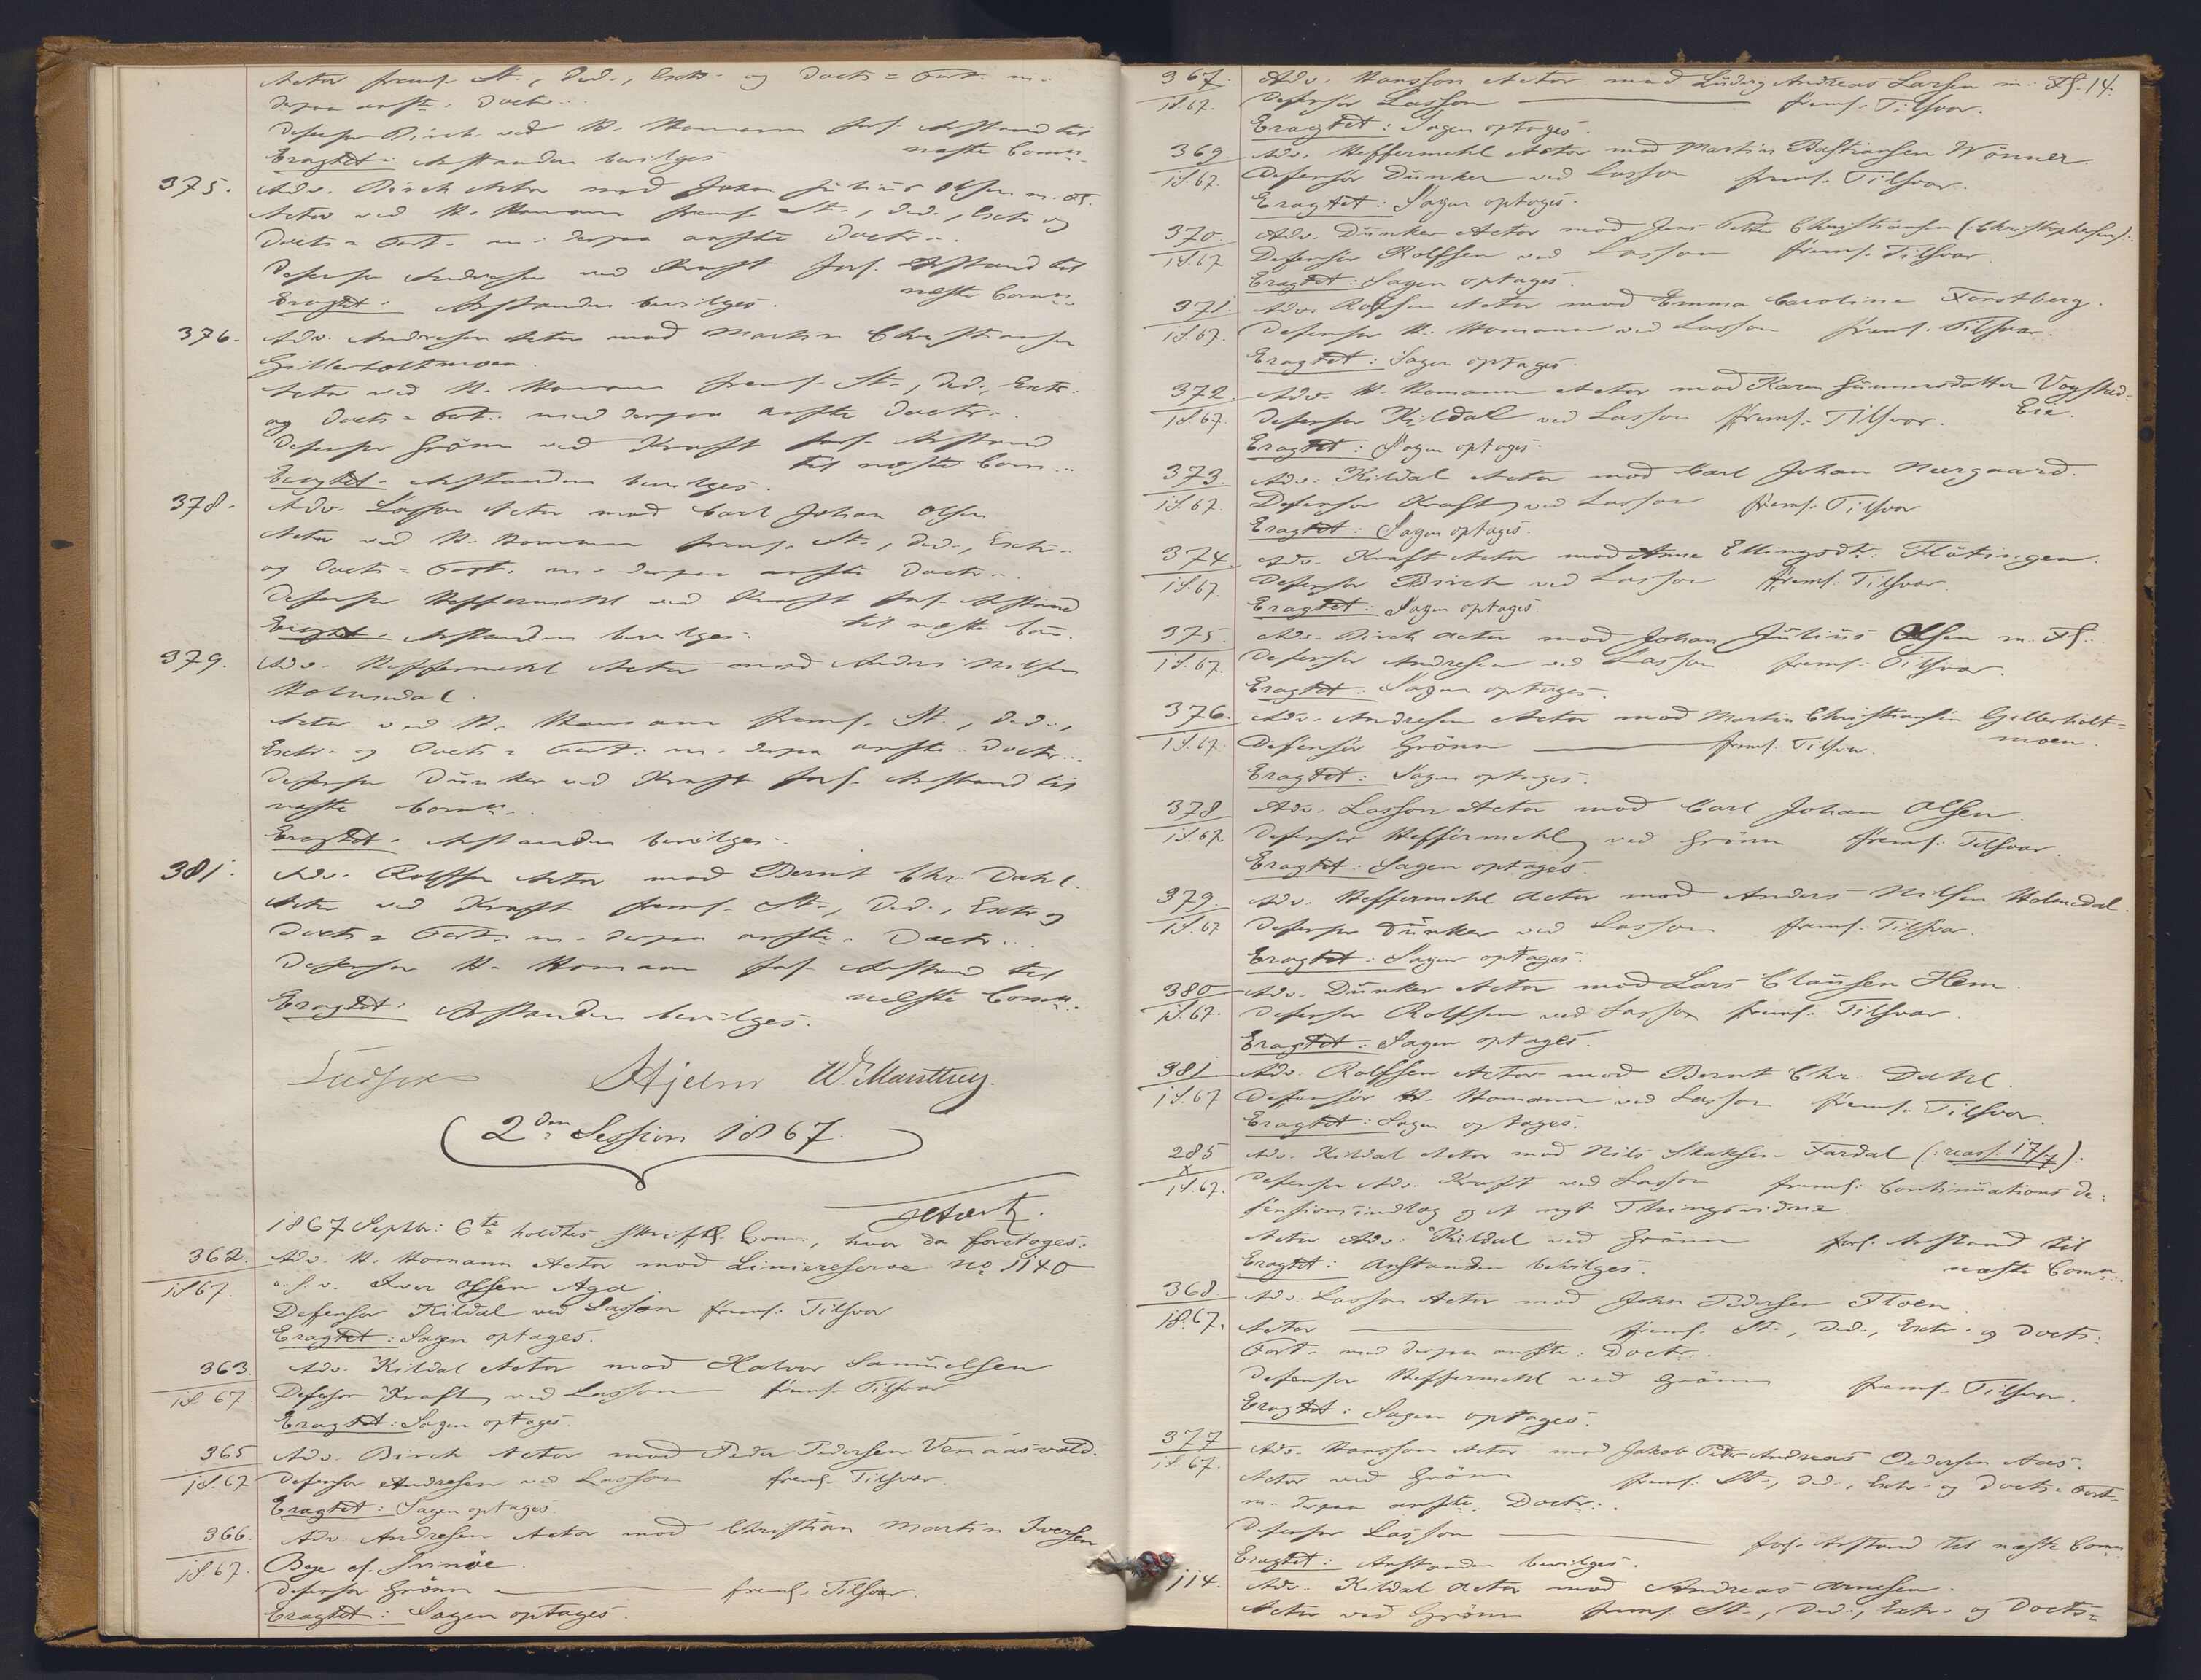 Actor frems. St., Ded., Extr. og Docts = Fort. m.
derpaa anførte Doctr..
Defensor Birch ved H. Homann forl. Anstand til
næste Comn.
Eragtet: Anstanden bevilges
375. Adv. Birch Actor mod Johan Julius Olsen m. Fl.
Actor ved H. Homann frems. St., Ded., Extr. og
Docts = Fort. m. derpaa anførte Doctr..
Defensor Andresen ved Kraft forl. Anstand til
næste Comn.
Eragtet: Anstanden bevilges.
376. Adv. Andresen Actor mod Martin Christiansen
Gillerholtmoen.
Actor ved H. Homann frems. St., Ded., Extr.
og Docts = Fort. med derpaa anførte Doctr..
Defensor Grönn ved Kraft forl. Anstand
til næste Com...
Eragtet: Anstanden bevilges.
378. Adv. Lasson Actor mod Carl Johan Olsen
Actor ved H. Homann frems. St., Ded., Extr..
og Docts = Fort. m. derpaa anførte Doctr..
Defensor Heffermehl ved Kraft forl. Anstand
til næste Com.
Eragtet: Anstanden bevilges.
379. Adv. Heffermehl Actor mod Anders Nilsen
Holmedal.
Actor ved H. Homann frems. St., Ded.,
Extr. og Docts = Fort. m. derpaa anførte Doctr...
Defensor Dünker ved Kraft forl. Anstand til
næste Comn..
Eragtet: Anstanden bevilges.
381. Adv. Rolffsen Actor mod Bernt Chr. Dahl.
Actor ved Kraft frems. St., Ded., Extr. og
Docts = Fort. m. derpaa anførte Doctr...
Defensor H. Homann forl. Anstand til
næste Comn..
Eragtet: Anstanden bevilges.
Hjelm W. Manthey.
2den Session 1867.
1867 Septbr: 6te holdtes skriftl. Com., hvor da foretages:
362. Adv. H. Homann Actor mod Liniereserve No 1140
1867. o. s. v. Iver Olsen Aga.
Defensor Kildal ved Lasson frems. Tilsvar
Eragtet: Sagen optages.
363. Adv. Kildal Actor mod Halvor Samuelsen
1867. Defensor Kraft ved Lasson frems. Tilsvar
Eragtet: Sagen optages.
365 Adv. Birch Actor mod Peder Pedersen Venaasvold.
1867 Defensor Andresen ved Lasson frems. Tilsvar.
Eragtet: Sagen optages.
366. Adv. Andresen Actor mod Christian Martin Iversen
1867. Bøe
Defensor Grönn frems. Tilsvar.
Eragtet: Sagen optages.
367. Adv. Hansson Actor mod Lüdvig Andreas Larsen m. Fl. 14.
1867. Defensör Lasson frems. Tilsvar.
Eragtet: Sagen optages.
369 Adv. Heffermehl Actor mod Martin Bastiansen Wönner.
1867. Defensör Dünker ved Lasson frems. Tilsvar.
Eragtet: Sagen optages.
370. Adv. Dünker Actor mod Jens Petter Christiansen (:Christophersen:).
1867 Defensör Rolffsen ved Lasson frems. Tilsvar.
Eragtet: Sagen optages.
371. Adv. Rolffsen Actor mod Emma Caroline Forstberg.
1867. Defensor H. Homann ved Lasson frems. Tilsvar.
Eragtet: Sagen optages.
372. Adv. H. Homann Actor mod Karen Gunnersdatter Vogsted-
Eie.
1867. Defensor Kildal ved Lasson frems. Tilsvar.
Eragtet: Sagen optages.
373. Adv. Kildal Actor mod Carl Johan Neergaard.
1867. Defensor Kraft ved Lasson frems. Tilsvar
Eragtet: Sagen optages.
374. Adv. Kraft Actor mod Anne Ellingsdtr. Flötingen.
1867. Defensör Birch ved Lasson frems. Tilsvar.
Eragtet: Sagen optages.
375. Adv. Birch Actor mod Johan Jülius Olsen m. Fl.
1867. Defensör Andresen ved Lasson frems. Tilsvar.
Eragtet: Sagen optages.
376. Adv. Andresen Actor mod Martin Christiansen Gillerholt=
moen.
1867. Defensör Grönn frems. Tilsvar.
Eragtet: Sagen optages.
378 Adv. Lasson Actor mod Carl Johan Olsen.
1867 Defensör Heffermehl ved Grönn frems. Tilsvar.
Eragtet: Sagen optages.
379. Adv. Heffermehl Actor mod Anders Nilsen Holmedal.
1867 Defensor Dünker ved Lasson frems. Tilsvar.
Eragtet: Sagen optages.
380 Adv. Dünker Actor mod Lars Claüsen Hem.
1867. Defensor Rolffsen ved Lasson frems. Tilsvar.
Eragtet: Sagen optages.
381 Adv. Rolffsen Actor mod Bernt Chr. Dahl.
1867 Defensör H. Homann ved Lasson frems. Tilsvar.
Eragtet: Sagen optages.
285 Adv. Kildal Actor mod Nils Skaksen Fardal (:reass. 17/7:).
x
1867. Defensor Adv. Kraft ved Lasson frems. Continuations De=
fensionsindlæg og et nyt Thingsvidne.
Actor Adv. Kildal ved Grönn forl. Anstand til
næste Comn..
Eragtet: Anstanden bevilges.
368. Adv. Lasson Actor mod John Pedersen Floen.
1867. Actor frems. St., Ded., Extr. og Docts=
Fort. med derpaa anførte Doctr..
Defensor Heffermehl ved Grönn frems. Tilsvar.
Eragtet: Sagen optages.
377 Adv. Hansson Actor mod Jakob Peder Andreas Pedersen Aas.
1867. Actor ved Grönn frems. St., Ded., Extr. og Docts = Fort.
m. derpaa anførte Doctr..
Defensor Lasson forl. Anstand til næste Comn.
Eragtet: Anstanden bevilges.
114. Adv. Kildal Actor mod Andreas Arnesen.
Actor ved Grönn frems. St., Ded., Extr. og Docts=